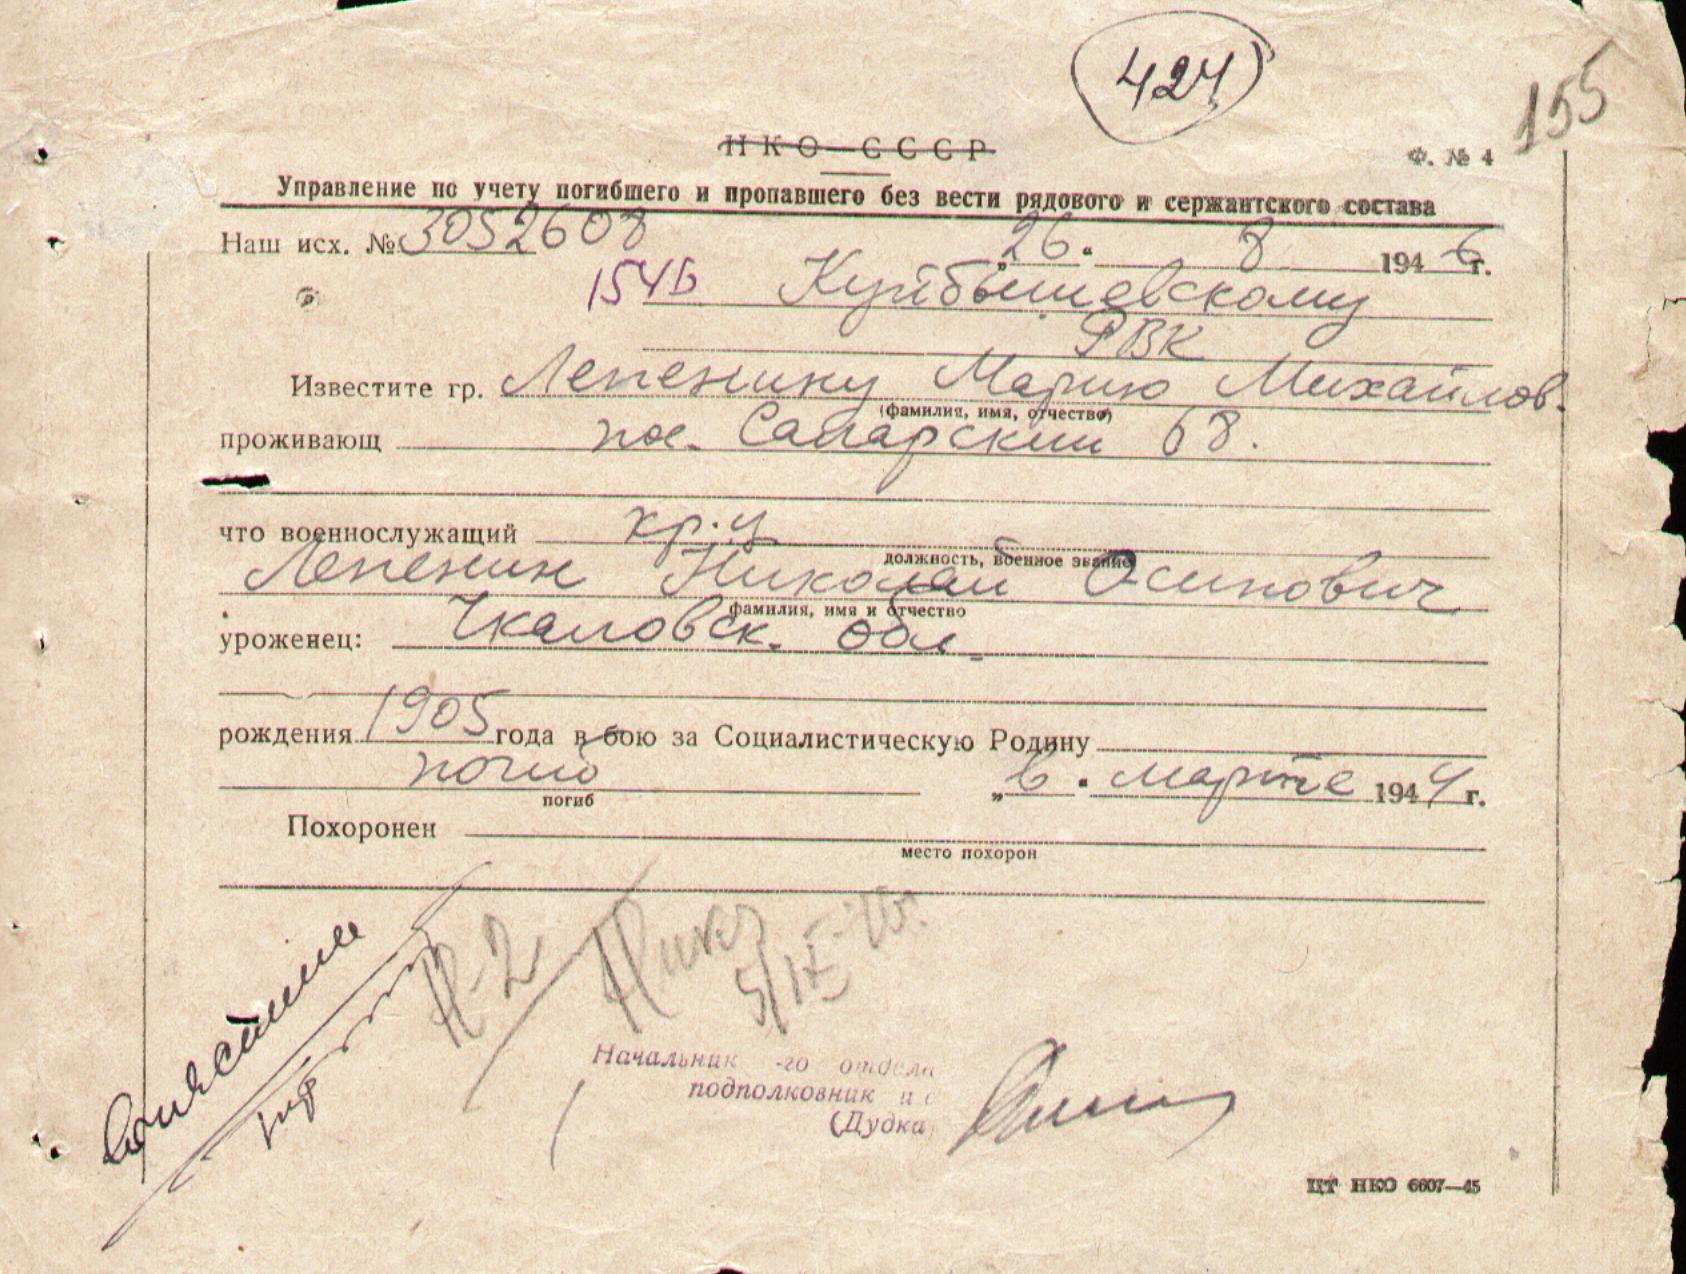 424
155
НКО СССР
Ф. № 4
Управление по учету погибшего и пропавшего без вести рядового и сержантского состава
Наш исх. № 3052608 „26“ 8 1946 г.
154Б Куйбышевскому
РВК
Известите гр. Лепенину Марию Михайлов.
(фамилия, имя, отчество)
проживающ пер. Самарский 68.
что военнослужащий кр-ц
должность, военное звание
Лепенин Николай Осипович
фамилия, имя и отчество
уроженец: Чкаловск. обл.
рождения 1905 года в бою за Социалистическую Родину
погиб „в“ марте 1944 г.
погиб
Похоронен
место похорон
Р-2
5/IX
Начальник -го отдела
подполковник и с
(Дудка)
ЦТ НКО 6607—45